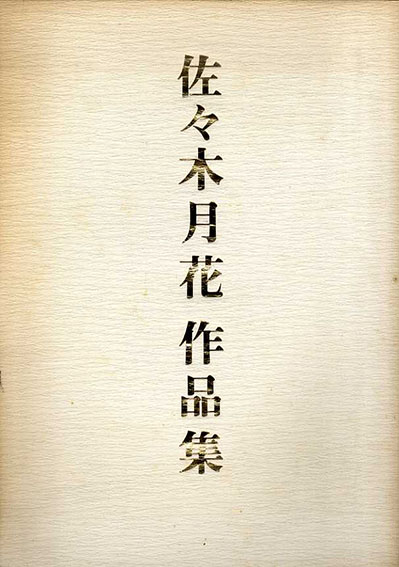 佐々木月花 作品集